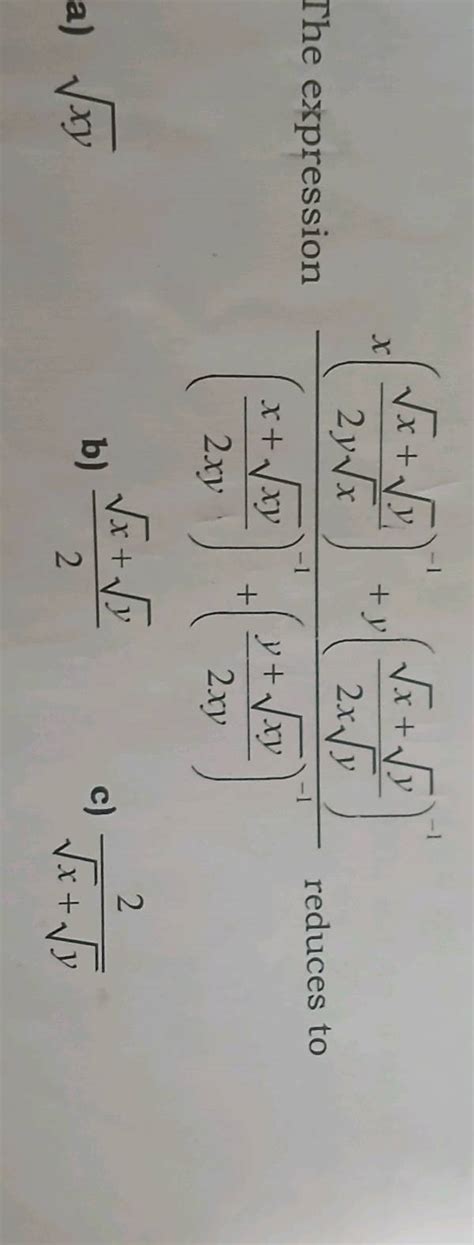 The expression \frac{x\left(\frac{\sqrt{x}+\sqrt{y}}{2y\sqrt{x}}\right)^{-1}+y\left(\frac{\sqrt{x}+\sqrt{y}}{2x\sqrt{y}}\right)^{-1}}{\left(\frac{x+\sqrt{xy}}{2xy}\right)^{-1}+\left(\frac{y+\sqrt{xy}}{2xy}\right)^{-1}} reduces to
a) \sqrt{xy} b) \frac{\sqrt{x}+\sqrt{y}}{2} c) \frac{2}{\sqrt{x}+\sqrt{y}}